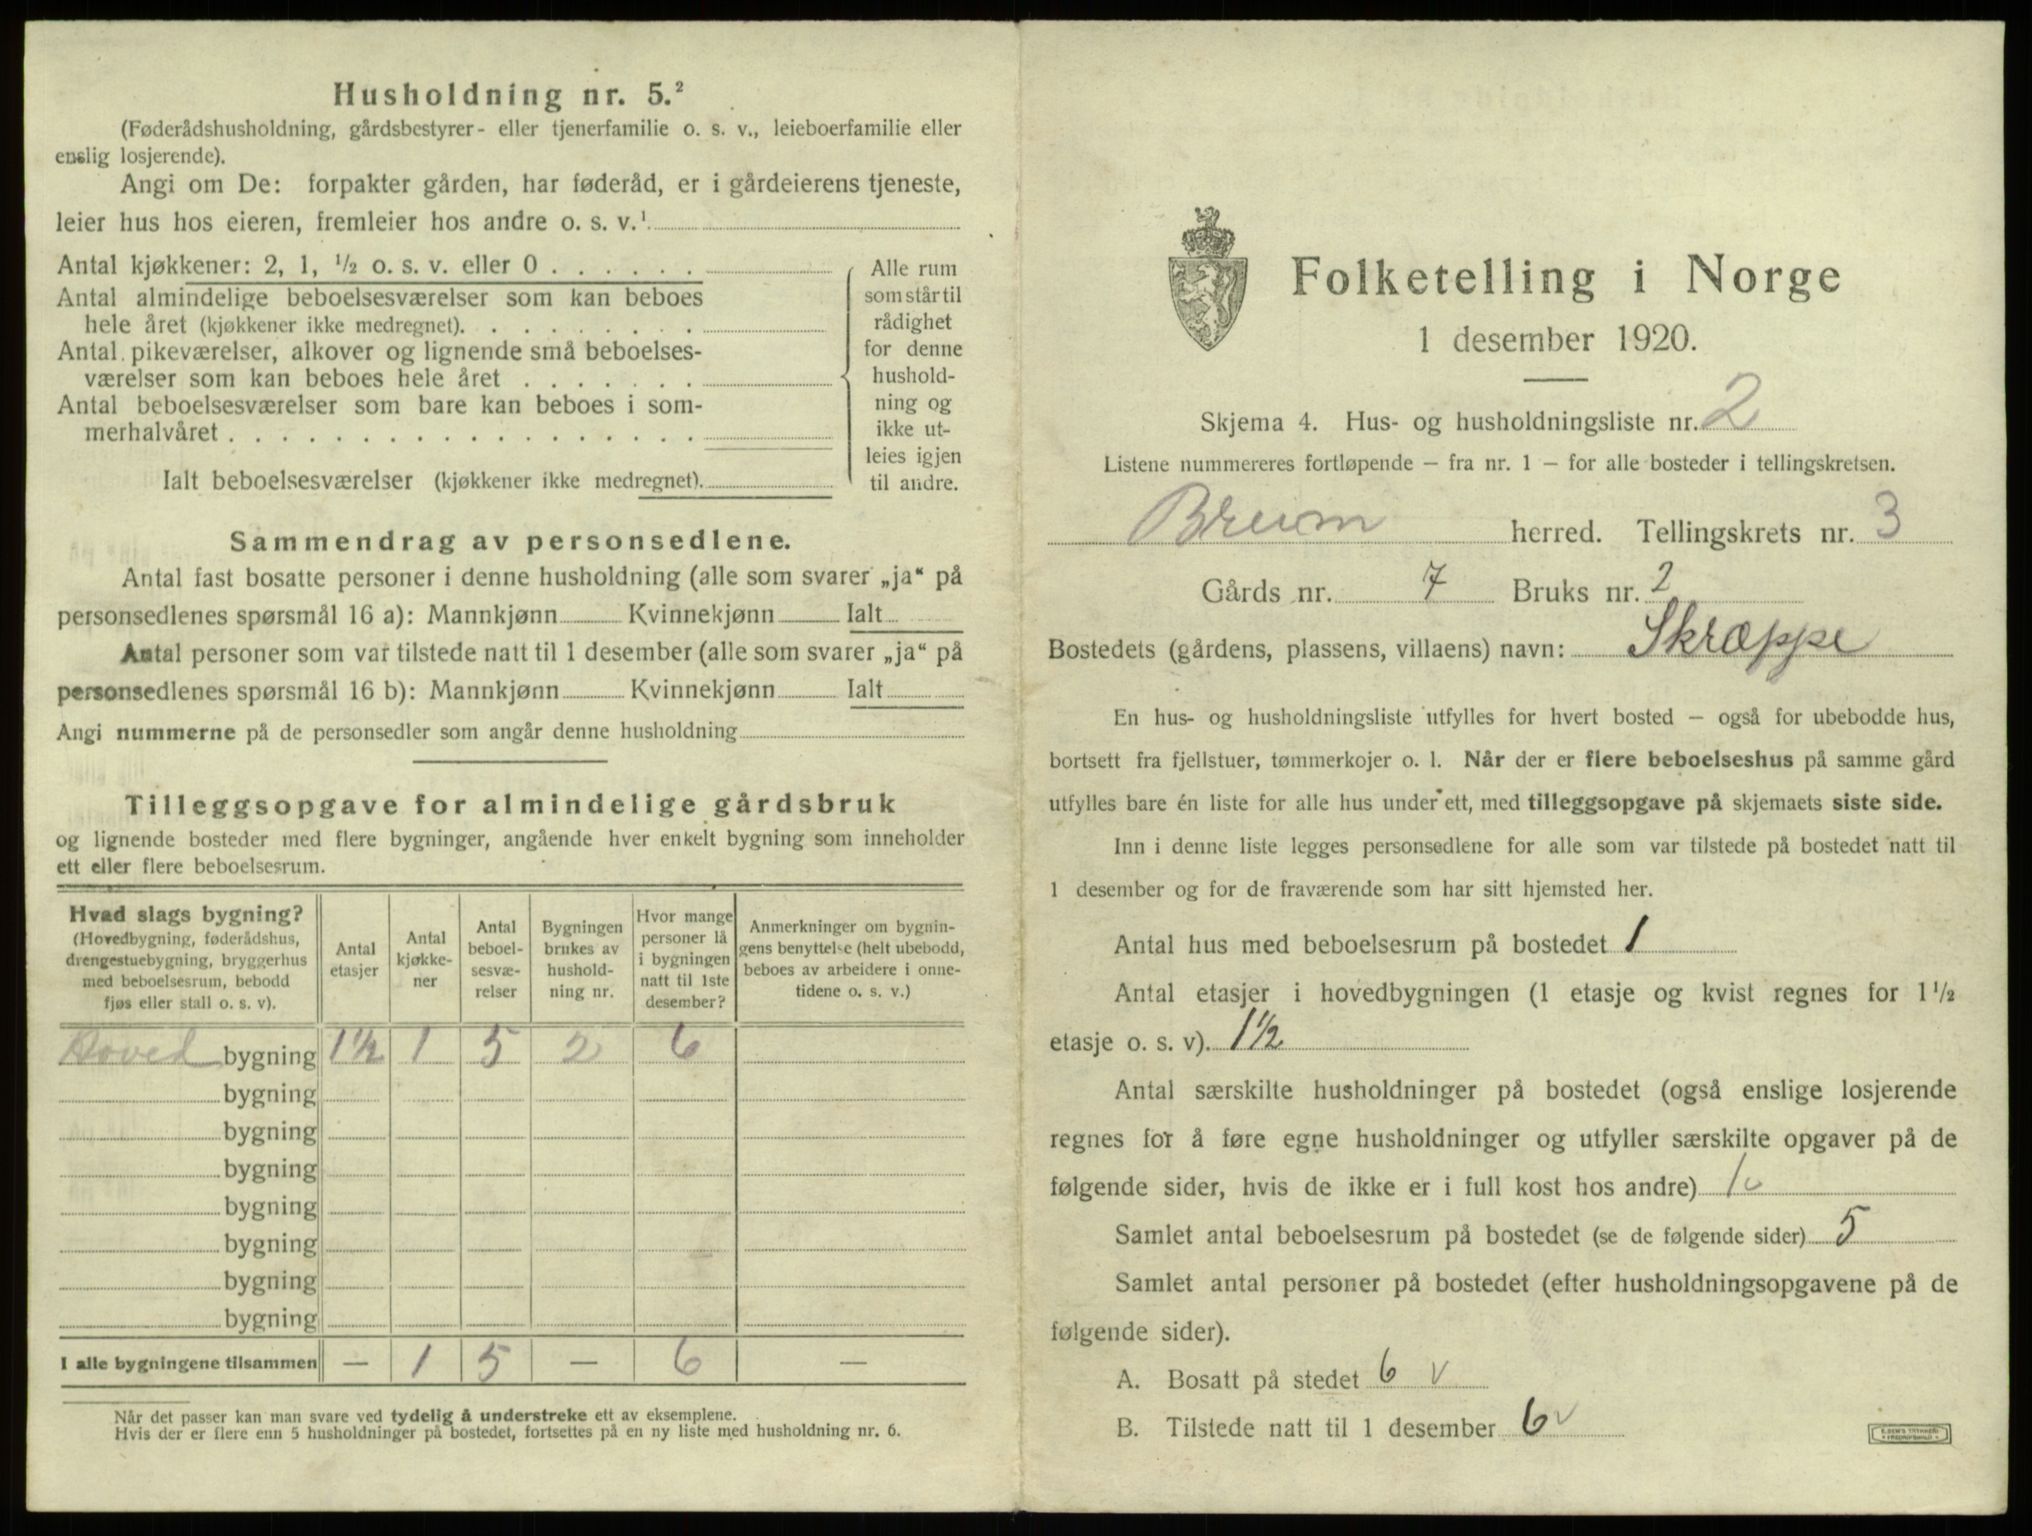 Husholdning nr. 5.²
(Føderådshusholdning, gårdsbestyrer- eller tjenerfamilie o. s. v., leieboerfamilie eller
enslig losjerende).
Angi om De: forpakter gården, har føderåd, er i gårdeierens tjeneste,
leier hus hos eieren, fremleier hos andre o. s. v.¹
Antal kjøkkener: 2, 1, ½ o. s. v. eller 0 . . . . . .
Antal almindelige beboelsesværelser som kan beboes
hele året (kjøkkener ikke medregnet). . . . . . . . .
Antal pikeværelser, alkover og lignende små beboelses-
værelser som kan beboes hele året . . . . . . .
Antal beboelsesværelser som bare kan beboes i som-
merhalvåret . . . . . . . . . . . . . . . . . .
Ialt beboelsesværelser (kjøkkener ikke medregnet).
Alle rum
som står til
rådighet
for denne
hushold-
ning og
ikke ut-
leies igjen
til andre.
Sammendrag av personsedlene.
Antal fast bosatte personer i denne husholdning (alle som svarer „ja“ på
personsedlenes spørsmål 16 a): Mannkjønn Kvinnekjønn Ialt
Antal personer som var tilstede natt til 1 desember (alle som svarer „ja“ på
personsedlenes spørsmål 16 b): Mannkjønn Kvinnekjønn Ialt
Angi nummerne på de personsedler som angår denne husholdning
Tilleggsopgave for almindelige gårdsbruk
og lignende bosteder med flere bygninger, angående hver enkelt bygning som inneholder
ett eller flere beboelsesrum.
Hvad slags bygning?
(Hovedbygning, føderådshus,
drengestuebygning, bryggerhus
med beboelsesrum, bebodd
fjøs eller stall o. s. v).
Antal
etasjer
Antal
kjøkke-
ner
Antal
beboel-
sesvæ-
relser
Bygningen
brukes av
hushold-
ning nr.
Hvor mange
personer lå
i bygningen
natt til 1ste
desember?
Anmerkninger om bygnin-
gens benyttelse (helt ubebodd,
beboes av arbeidere i onne-
tidene o. s. v.)
Hoved bygning 1½ 1 5 2 6
bygning
bygning
bygning
bygning
bygning
bygning
bygning
I alle bygningene tilsammen — 1 5 — 6 —
Når det passer kan man svare ved tydelig å understreke ett av eksemplene.
Hvis der er flere enn 5 husholdninger på bostedet, fortsettes på en ny liste med husholdning nr. 6.
Folketelling i Norge
1 desember 1920.
Skjema 4. Hus- og husholdningsliste nr. 2
Listene nummereres fortløpende – fra nr. 1 – for alle bosteder i tellingskretsen.
Breim herred. Tellingskrets nr. 3
Gårds nr. 7 Bruks nr. 2
Bostedets (gårdens, plassens, villaens) navn: Skræppe
En hus- og husholdningsliste utfylles for hvert bosted – også for ubebodde hus,
bortsett fra fjellstuer, tømmerkojer o. l. Når der er flere beboelseshus på samme gård
utfylles bare én liste for alle hus under ett, med tilleggsopgave på skjemaets siste side.
Inn i denne liste legges personsedlene for alle som var tilstede på bostedet natt til
1 desember og for de fraværende som har sitt hjemsted her.
Antal hus med beboelsesrum på bostedet 1
Antal etasjer i hovedbygningen (1 etasje og kvist regnes for 1½
etasje o. s. v). 1½
Antal særskilte husholdninger på bostedet (også enslige losjerende
regnes for å føre egne husholdninger og utfyller særskilte opgaver på de
følgende sider, hvis de ikke er i full kost hos andre) 1 v
Samlet antal beboelsesrum på bostedet (se de følgende sider) 5
Samlet antal personer på bostedet (efter husholdningsopgavene på de
følgende sider).
A. Bosatt på stedet 6 v
B. Tilstede natt til 1 desember 6 v